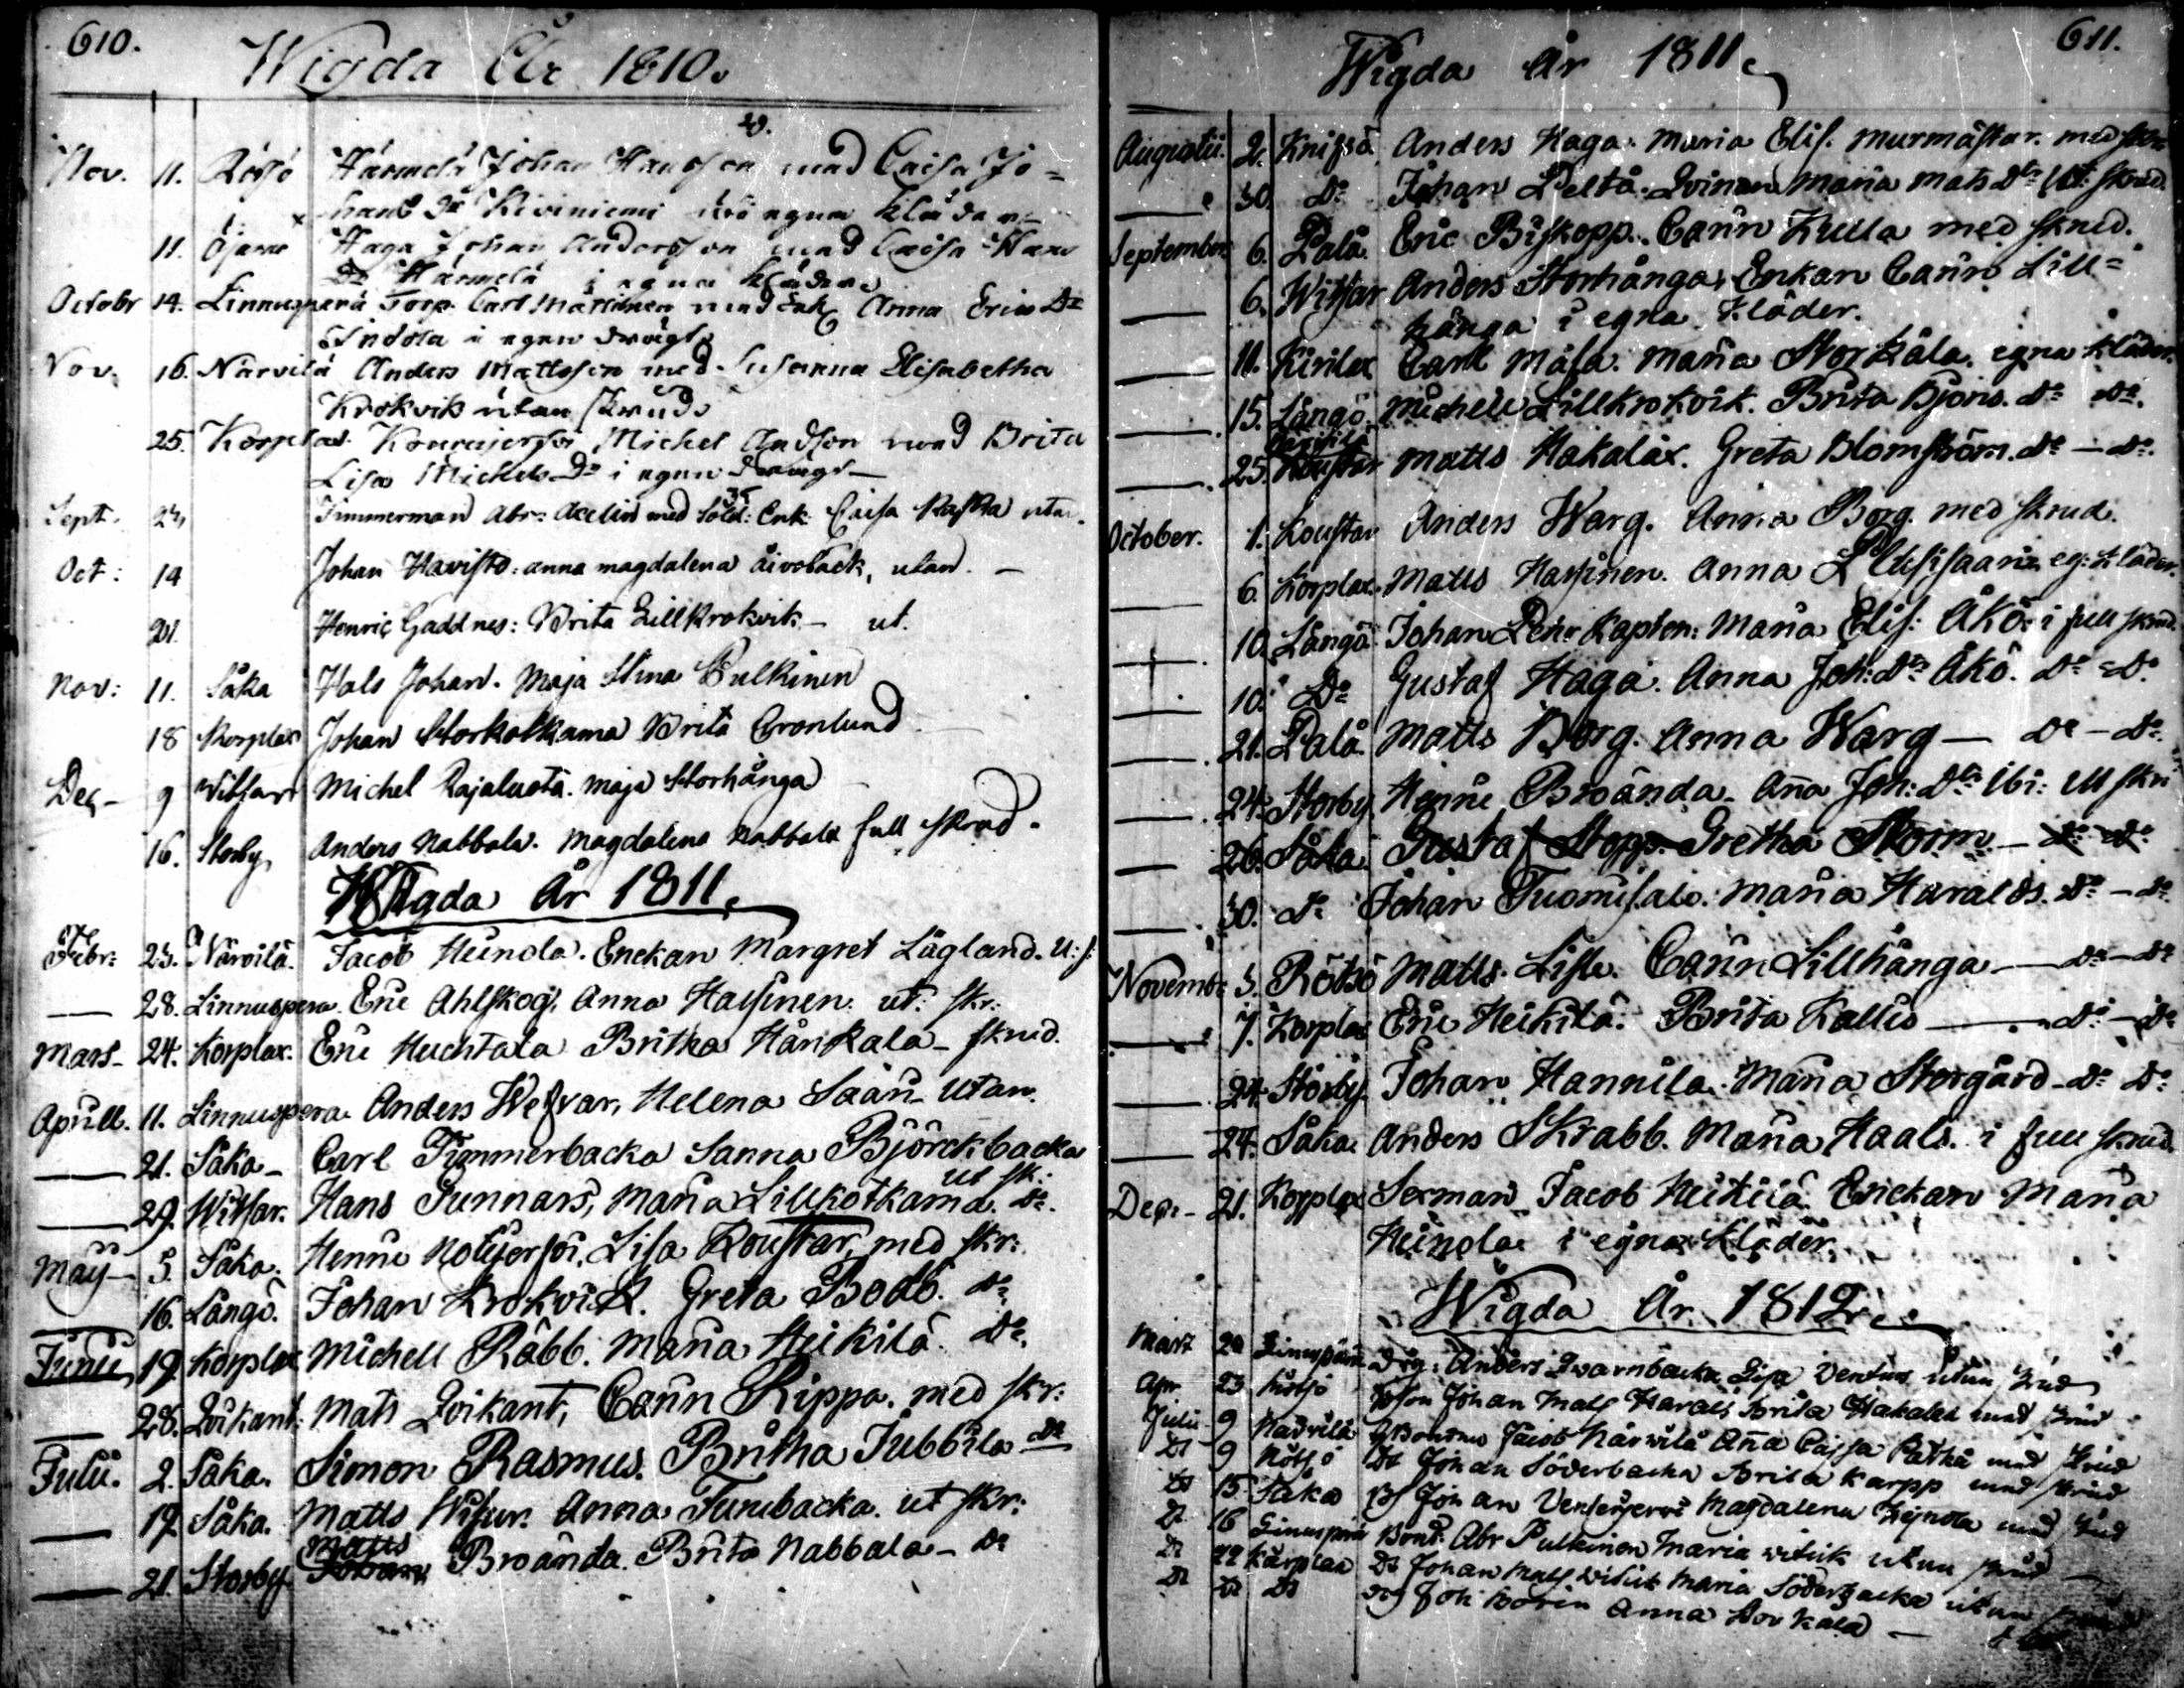 610.
Wigda År 1810.
Nov. 11. Rösö Härmelä Johan Hansson med Caisa Jo=
hans Dr Kiviniemi i sin egna kläder
11. Öjarne Haga Johan Andersson med Caisa Hans
Dr Härmelä i egna kläder
Octobr 14. Linnusperä Torp. Carl Mattsinen med Enk Anna Erics Dr
Indola i egen drägt
Nov. 16. Närvilä Anders Mattsson med Susanna Elisabetha
Krokvik utan skrud
25. Korplax Michel Andson med Brita
Lisa Michels Dr i egen drägt
Sept. 23 Timmerman Abr. Acelin med Sold: Enk: Caisa Raska utan.
Oct: 14 Johan Havisto: anna magdalena åivoback, utan. —
21. Henric Gaddnes: Brita Lillkrokvik — ut.
Nov: 11. Såka Hals Johan. Maja Stina Pulkinen
18 Korplax Johan Storkotkama Brita Cronlund
Dec — 9 Witsar Michel Rajalusta. maja Storhånga
16. Storby Anders Nabbala. Magdalena Nabbala full skrud.
Wigda År 1811.
Febr: 23. Närvilä. Jacob Heinola. Enckan Margret Lågland. U: s:
— 28. Linnuspera. Eric Ahlskog, Anna Hassinen. ut: skr:
Mars — 24. Korplax. Eric Huchtala Britha Hänkala — skrud.
Aprill. 11. Linnuspera. Anders Wefvar, Helena Saari utan.
— 21. Såka — Carl Timmerbacka Sanna Björckbacka
ut sk:
— 29. Witsar. Hans Gunnars, Maria Lillkotkama. Do.
May — 5. Såka. Henric Lisa Koustar, med skr:
16. Långö. Johan Krokvik. Greta Bodb. Do
Junii 19. Korplax Michell Räbb. Maria Heikilä. Do.
— 28. Qvikant: Mats Qvikant, Carin Rippa. med skr:
Julii. 2. Såka. Simon Rasmus. Britha Jubbila Do
— 19. Såka. Matts Wisur. Anna Furubacka. ut skr:
Matts
— 21. Storby. Johan Broända. Brita Nabbala — Do
611.
Wigda År 1811.
Augustii. 2. Knifsö Anders Haga. Maria Elis. Murmästar. med skr
— 30. Do Johan Peltå. Qvinan Maria Mats Dr Ut: skrud.
September 6. Palå. Eric Biskopp. Carin Kulla med skrud.
— 6. Witsar Anders Storhånga, Enkan Carin Lill=
hånga i egna kläder.
— 11. Kirilax Carl Måsa. Maria Storkåla. egna kläder.
— 15. Långö. Michell Lillkrokvik. Brita Björis. Do Do.
— 25. Koustar Matts Hakalax. Greta Blomström. Do — Do.
October. 1. Koustar Anders Warg. Anna Borg. med skrud.
— 6. Korplax. Matts Hassinen. Anna eg: kläder.
— 10. Långö. Johan Pehr Kapten: Maria Elis: Åkö. i full skrud.
— 10. Do Gustaf Haga. Anna Joh: Dr Åkö. Do = Do
— 21. Palå. Matts Borg. Anna Warg — Do — Do.
— 24. Storby. Henric Broända. Aña Joh: Dr ibi: ut skru
— 26. Såka. Gustaf Stopp. Gretha Storm — Do Do
— 30. Do Johan Tuomisalo. Maria Haralds. Do — Do
Novembr 3. Rötsö Matts. Lisle. Carin Lillhånga — Do — Do
— 7. Korplax Eric Heikilä. Brita Kallio — Do — Do
— 24. Storby. Johan Hannila. Maria Storgård — Do Do
— 24. Såka. Anders Skrabb. Maria Haals. i full skrud.
Dec: — 21. Korplax Sexman Jacob Heikilä. Enckan Maria
Heinola i egna kläder.
Wigda År 1812.
Mart 29 Linuspärä Drg: Anders Swarnbacka Lisa Ventus utan skrud
Apr 23 Rötsö Johan Mats Harals Brita Hakalax med skrud
Julii 9 Närvilä Bondens Jacob Närvilä Aña Cajsa Patka med skrud
Do 9 Rötsö Do Johan Söderbacka Brita Karpp med skrud
Do 15 Såka Johan Magdalena Hejnola med skrud
Do 16 Linuspera Bond: Abr Pulkinen Maria witsik utan skrud
Do 22 Karplax Do Johan Mats witsik Maria Söderbacka utan
Do Do Do Drg Joh: Anna Storkala —